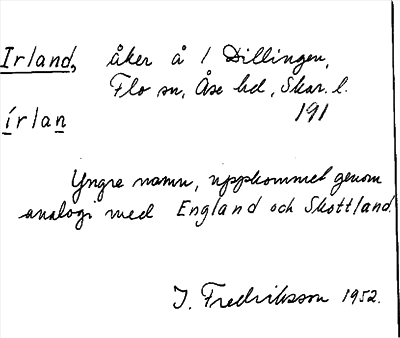 Irland, åker å / Dillingen,
Flo sn, Åse hd, Skar. l.
191
írlan
Yngre namn, uppkommet genom
analogi med England och Skottland.
I. Fredriksson 1952.